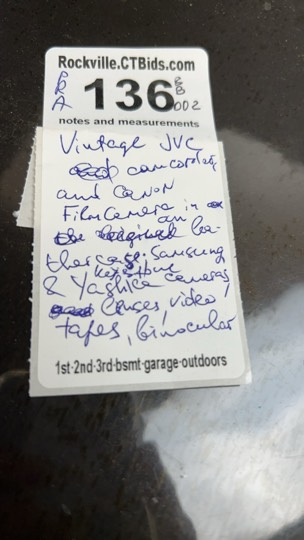 Rockville.CTBids.com
PRA 136 BB 002
notes and measurements
Vintage JVC
camcorder
and Canon
Film Camera in
an original lea-
ther case. Samsung
Keystone
& Yashica cameras
lenses, video
tapes, binocular
1st-2nd-3rd-bsmt-garage-outdoors